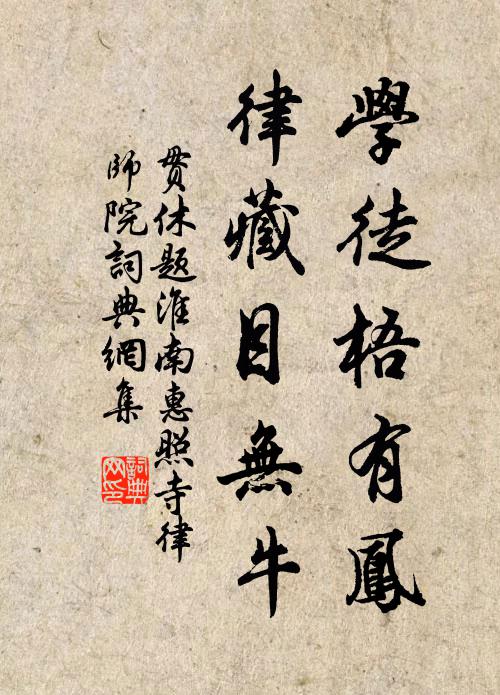 學徒梧有鳳
律藏目無牛
貫休題淮南惠照寺律
師院詞典網集
詞典
网印